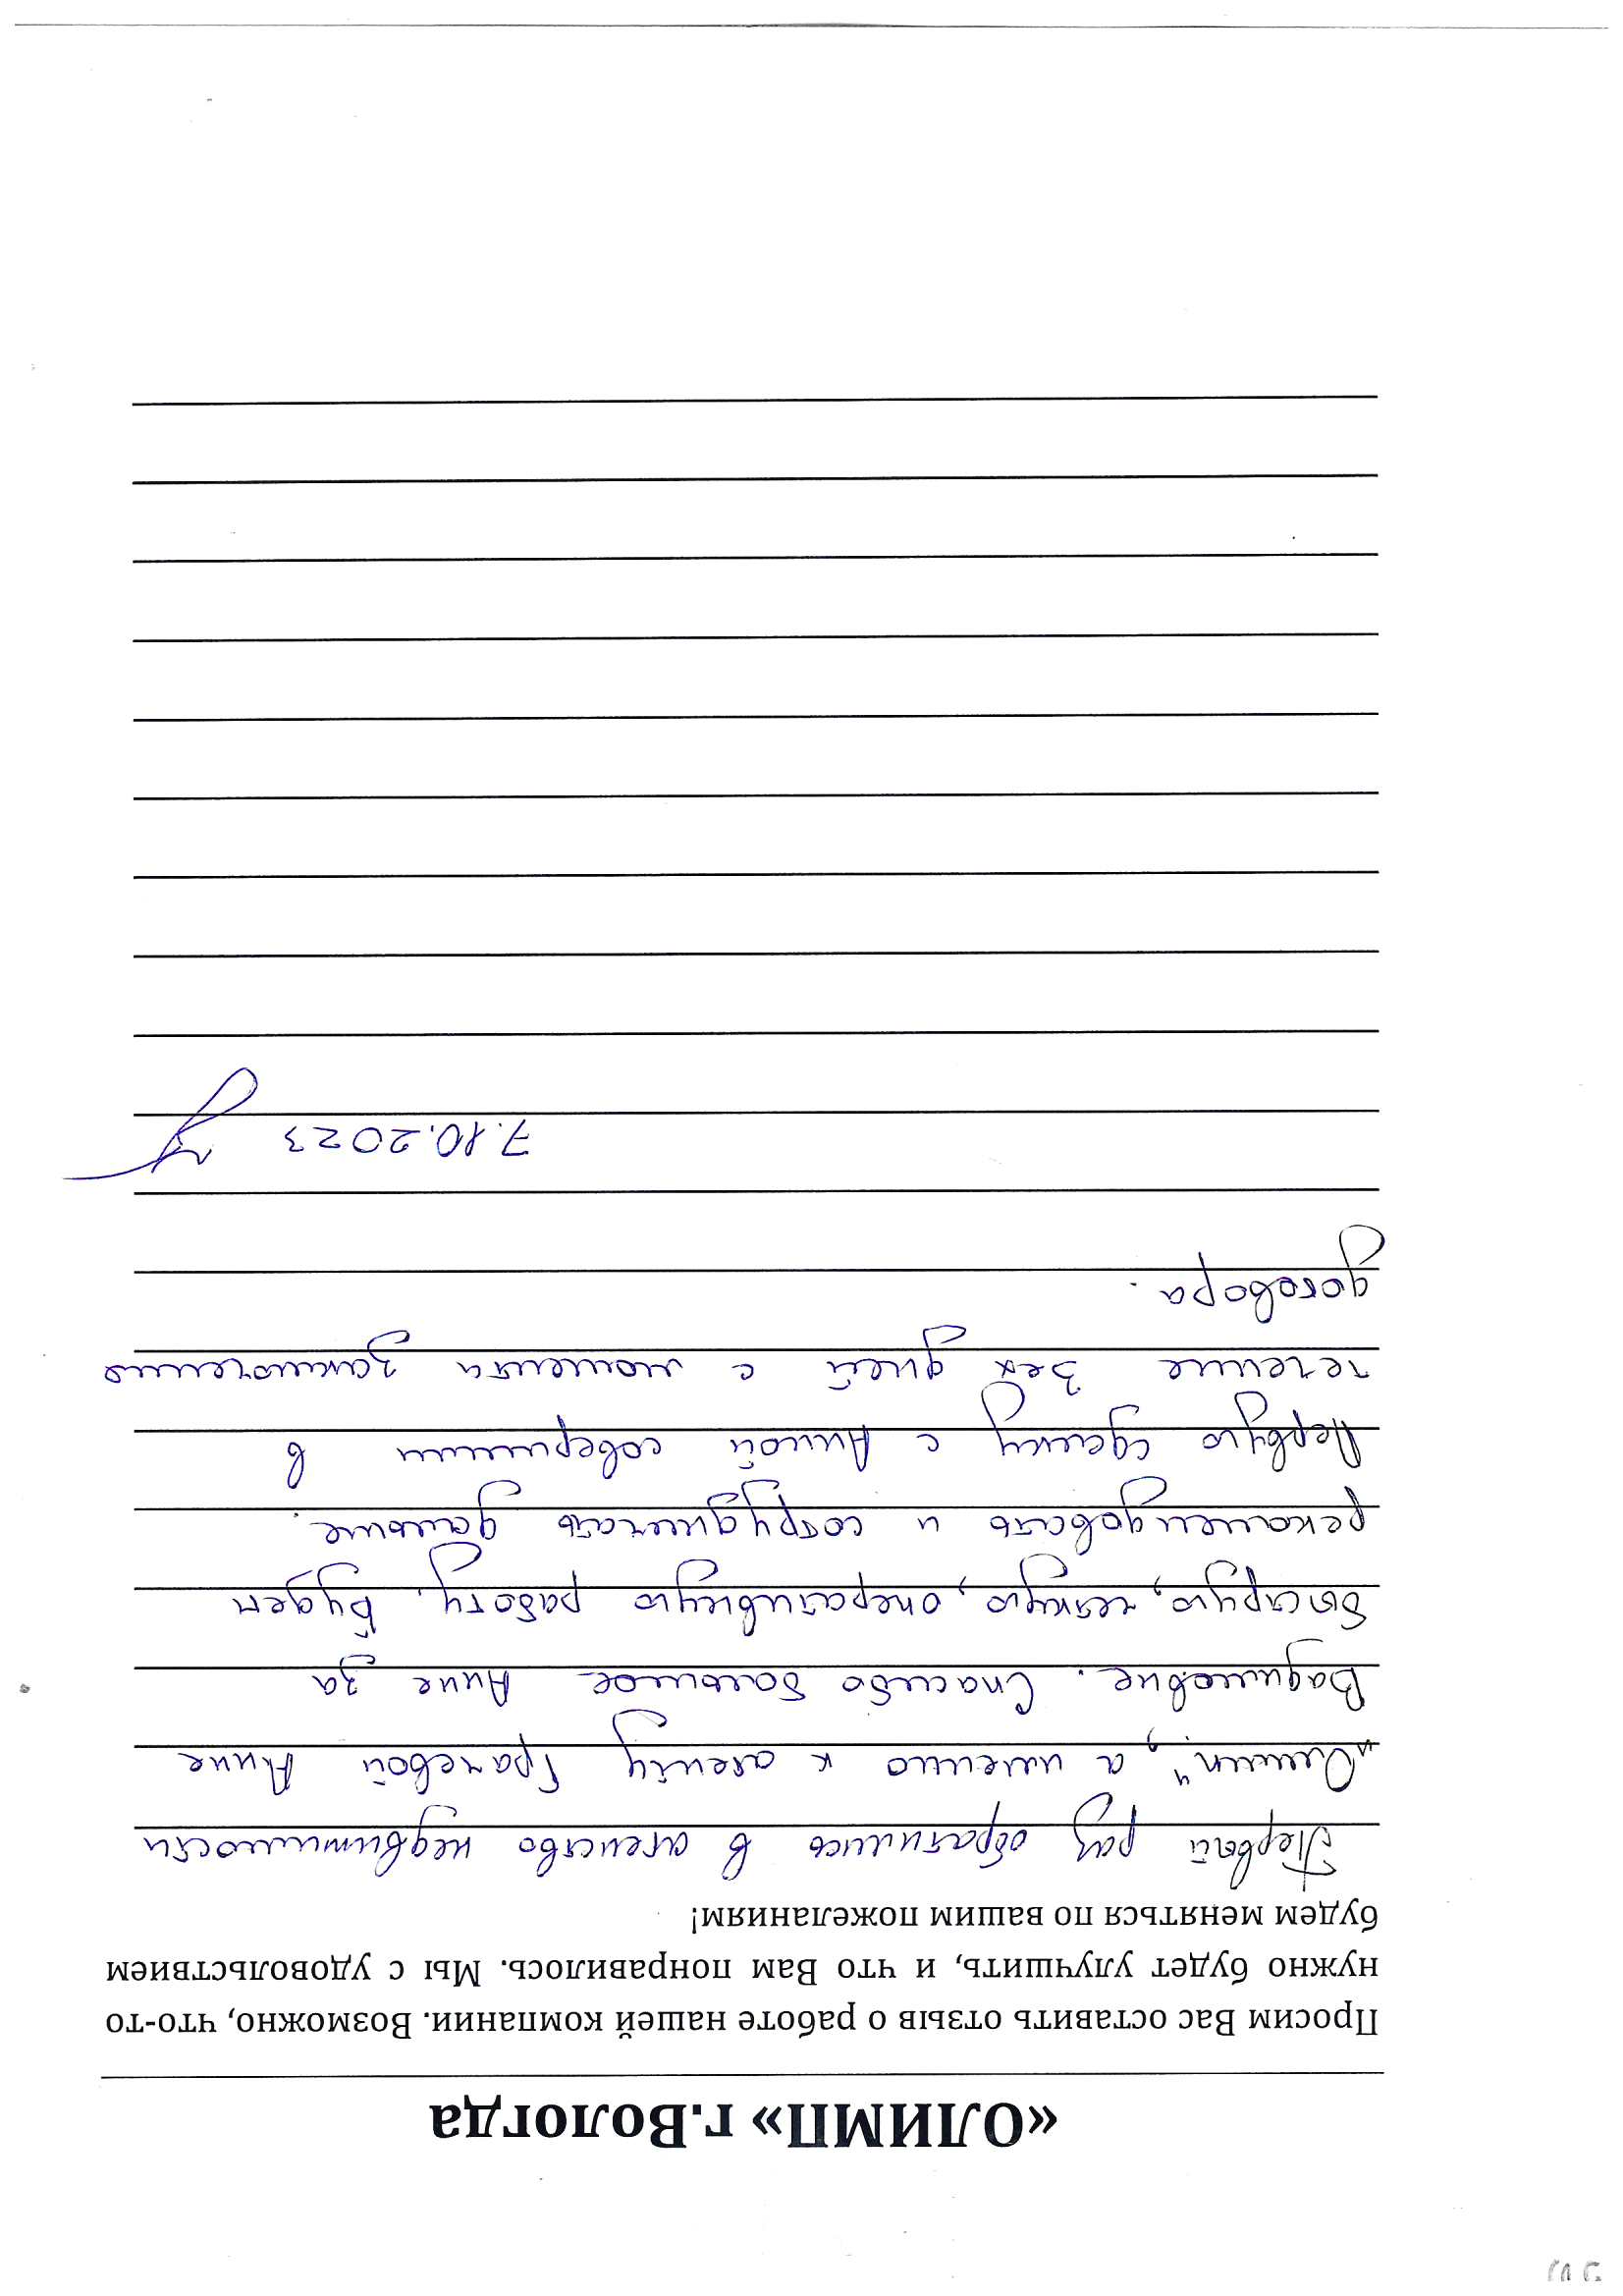 «ОЛИМП» г.Вологда
Просим Вас оставить отзыв о работе нашей компании. Возможно, что-то
нужно будет улучшить, и что Вам понравилось. Мы с удовольствием
будем меняться по вашим пожеланиям!
Первый раз обратились в агенство недвижимости
"Олимп", а именно к агенту Грачевой Анне
Вадимовне. Спасибо большое Анне за
быструю, четкую, оперативную работу. Будем
рекомендовать и сотрудничать дальше.
Первую сделку с Анной совершили в
течение 3ех дней с момента заключения
договора.
7.10.2023